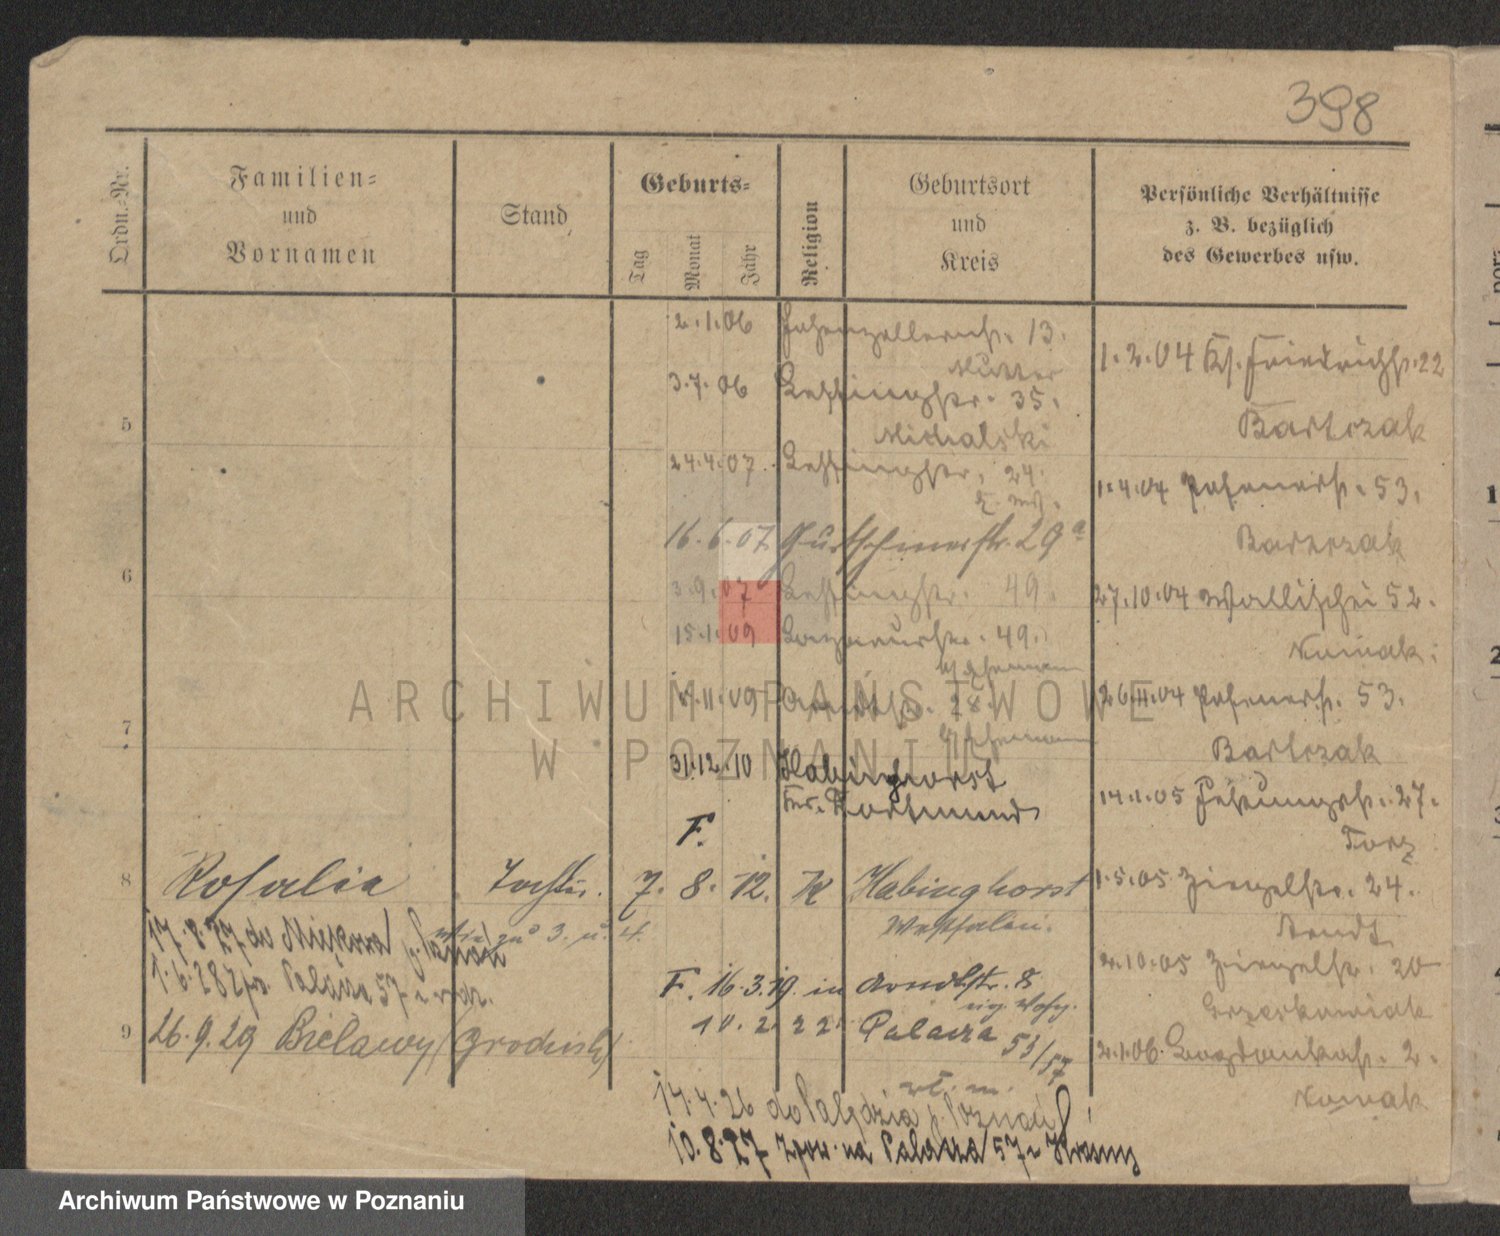 398
Ordn.-Nr.
Familien-
und
Vornamen
Stand
Geburts-
Tag
Monat
Jahr
Religion
Geburtsort
und
Kreis
Persönliche Verhältnisse
z. B. bezüglich
des Gewerbes usw.
2.1.06 Hohenzollernstr. 13.
Mutter
3.7.06 Lessingstr. 35.
5
Michalski
24.4.07. Lessingstr. 24.
16.6.07 29a
6
3.9.07 Lessingstr. 49.
15.1.09 49.
b/ Ehemann
11.09 28.
b/ Ehemann
7
31.12.10 Habinghorst
Dortmund
F.
8 Rosalia Tochter. 7. 8. 12. K Habinghorst
Westfalen.
wie zu 3. u. 4.
17.8.27 do
1.6.28 Palacza 57
F. 16.3.19. in Arndtstr. 8
eig. Wohng.
10.2.22. Palacza 53/57
9 26.9.29 Bielawy (Grodzisk)
14.4.26 do Palędzia p. Poznań
10.8.27 na Palacza 57
1.2.04 Kl. Friedrichstr. 22
Bartczak
1.4.04 Posenerstr. 53.
Bartczak
27.10.04 Wallischei 52.
Nowak.
26.11.04 Posenerstr. 53.
Bartczak
14.1.05 27.
Torz
1.5.05 Ziegelstr. 24.
Arndt
2.10.05 Ziegelstr. 20
2.1.06. Bogdankastr. 2.
Nowak
ARCHIWUM PAŃSTWOWE
W POZNANIU
Archiwum Państwowe w Poznaniu